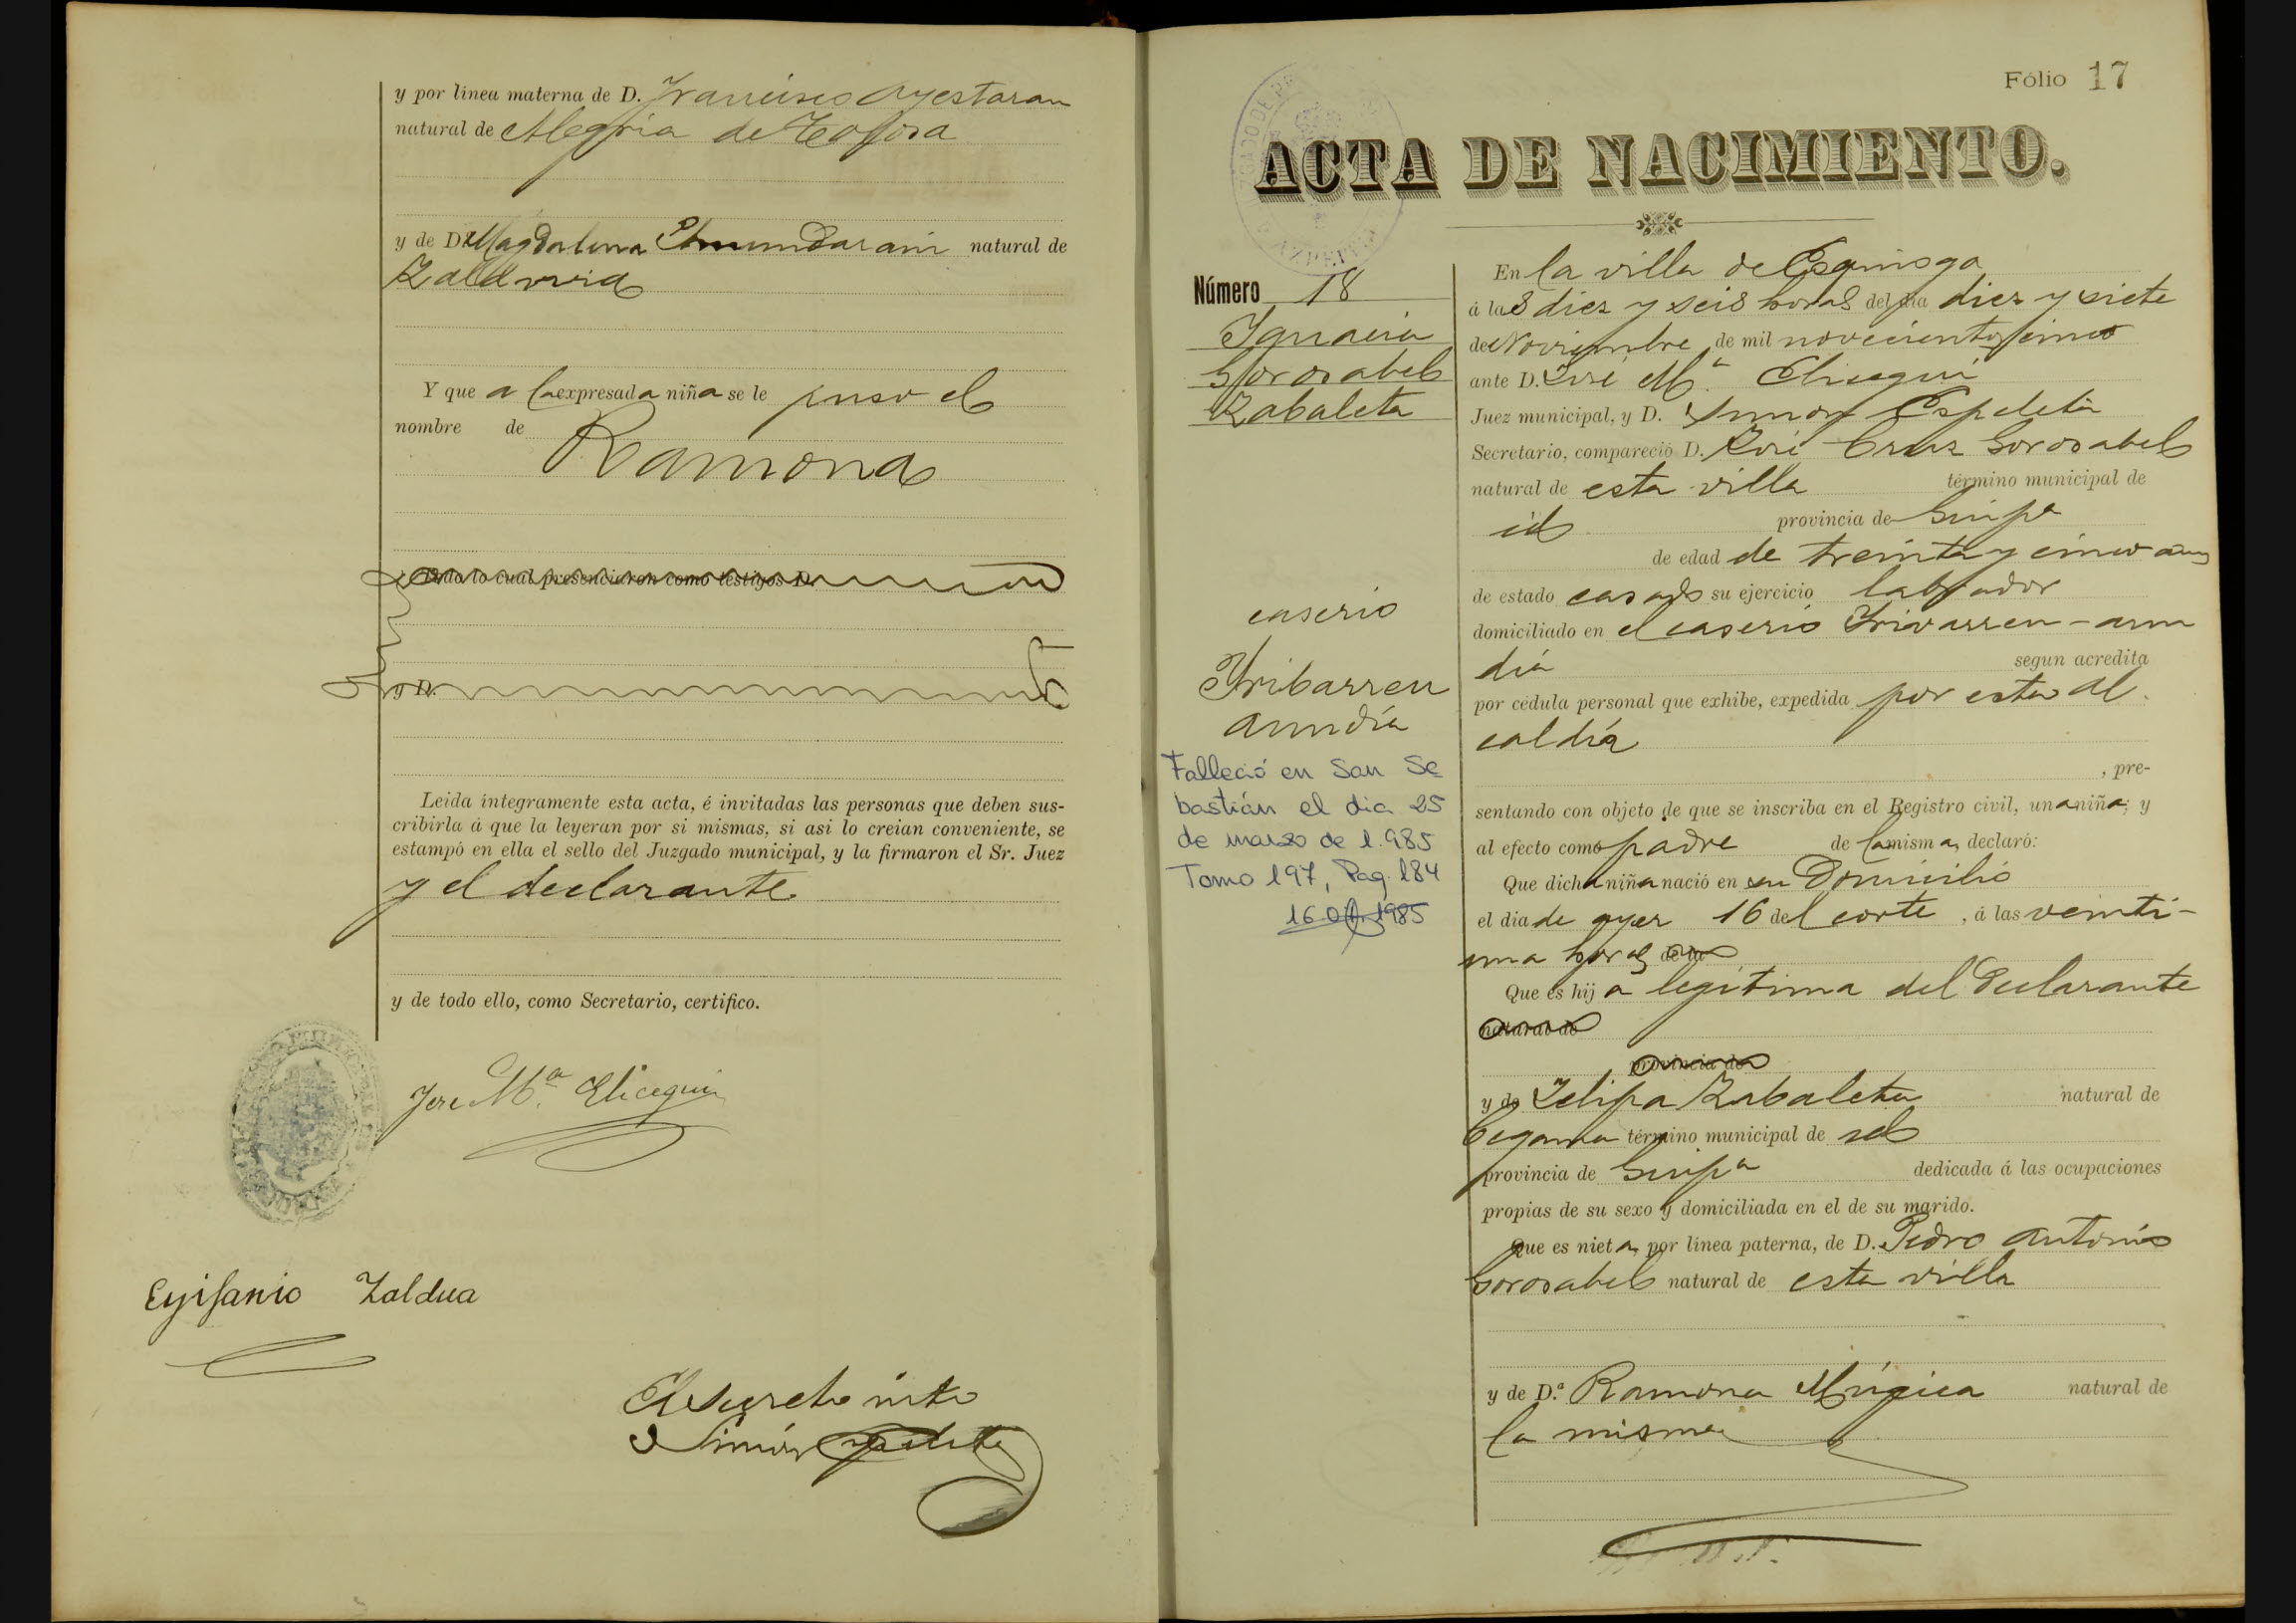 y por línea materna de D. Francisco Ayestaran
natural de Alegría de Tolosa
y de D.ª Magdalena Amundarain natural de
Zaldivia
Y que a la expresada niña se le puso el
nombre de
Ramona
Todo lo cual presenciaron como testigos D.
y D.
Leida íntegramente esta acta, é invitadas las personas que deben sus-
cribirla á que la leyeran por si mismas, si asi lo creian conveniente, se
estampó en ella el sello del Juzgado municipal, y la firmaron el Sr. Juez
y el declarante
y de todo ello, como Secretario, certifico.
José M.ª Elicegui
Epifanio Zaldua
El Secreto intº
Simón Espeleta
Fólio 17
ACTA DE NACIMIENTO.
Número 18
Ignacia
Gorosabel
Zabaleta
caserio
Yribarren
aundía
Falleció en San Se
bastián el dia 25
de marzo de 1.985
Tomo 197, Pag. 184
1985
En la villa de Ezquioga
á las diez y seis horas del dia diez y siete
de Noviembre de mil novecientos cinco
ante D. José M.ª Elicegui
Juez municipal, y D. Simon Espeleta
Secretario, compareció D. José Cruz Gorosabel
natural de esta villa término municipal de
id provincia de Guipª
de edad de treinta y cinco años
de estado casado su ejercicio labrador
domiciliado en el caserio Yrivarren-aun
día segun acredita
por cédula personal que exhibe, expedida por esta Al
caldía
, pre-
sentando con objeto de que se inscriba en el Registro civil, una niña; y
al efecto como padre de la misma, declaró:
Que dicha niña nació en su Domicilio
el dia de ayer 16 del corte, á las veinti-
una horas de la
Que es hija legítima del Declarante
natural de
provincia de
y de Felipa Zabaleta natural de
Cegama término municipal de id
provincia de Guipª dedicada á las ocupaciones
propias de su sexo y domiciliada en el de su marido.
Que es nieta, por línea paterna, de D. Pedro Antonio
Gorosabel natural de esta villa
y de D.ª Ramona Múgica natural de
la misma